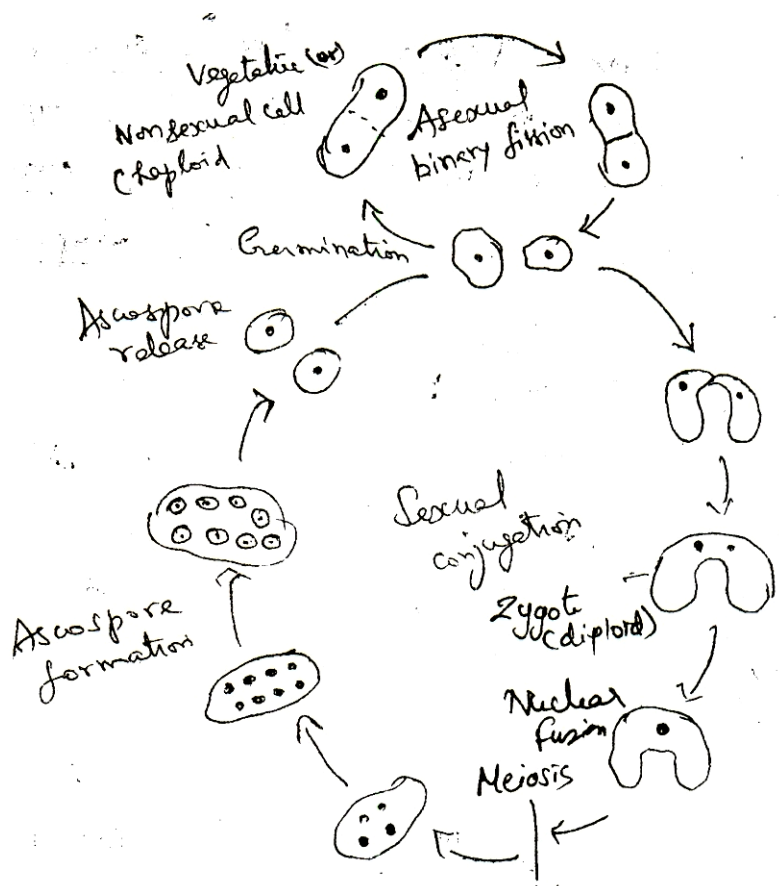 Vegetative (or)
Nonsexual cell
(haploid
Asexual
binary fission
Germination
Ascospore
release
Sexual
conjugation
Zygote
(diploid)
Nuclear
fusion
Meiosis
Ascospore
formation